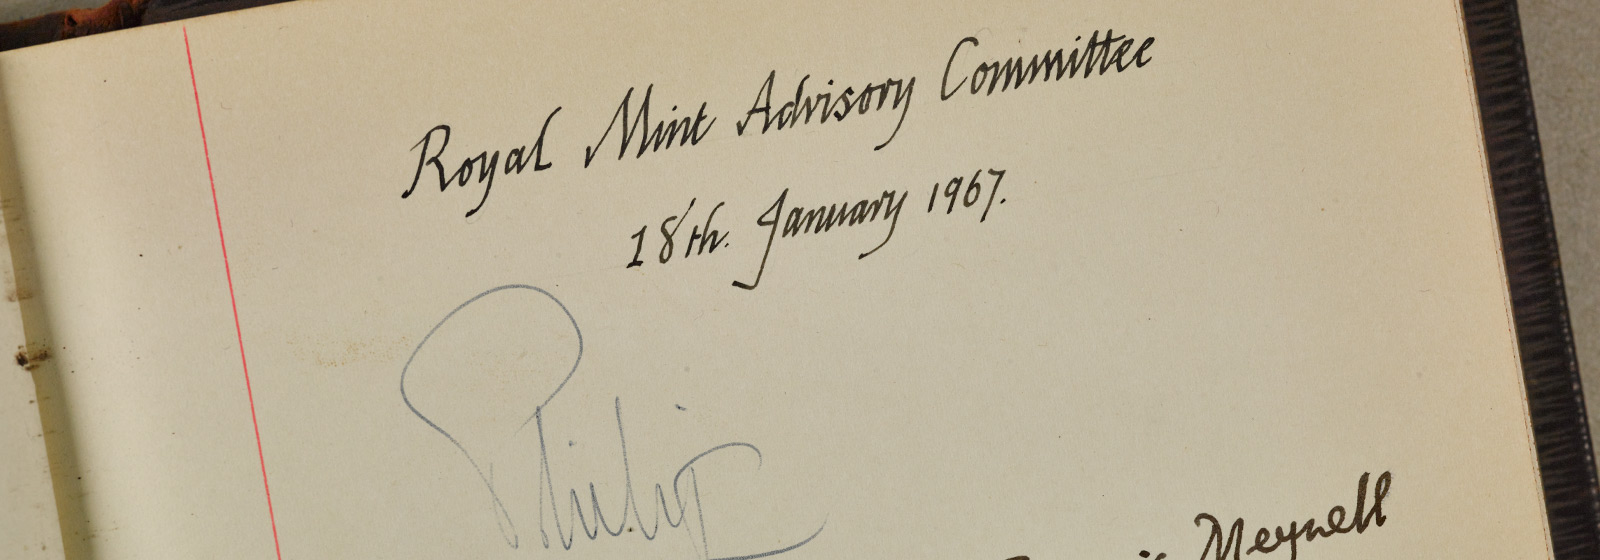 Royal Mint Advisory Committee
18th. January 1967.
Philip
Meynell